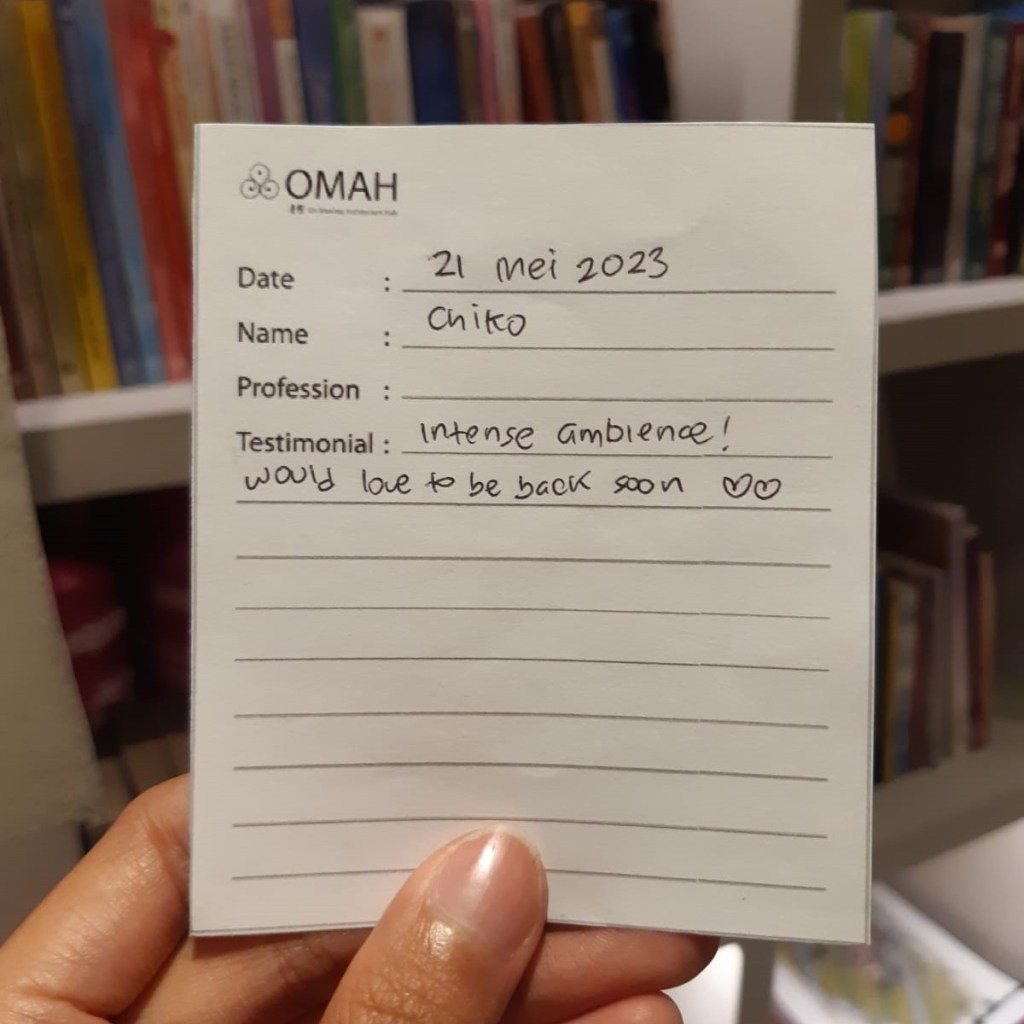 OMAH
Date : 21 mei 2023
Name : Chiko
Profession :
Testimonial : intense ambience!
would love to be back soon ♡♡